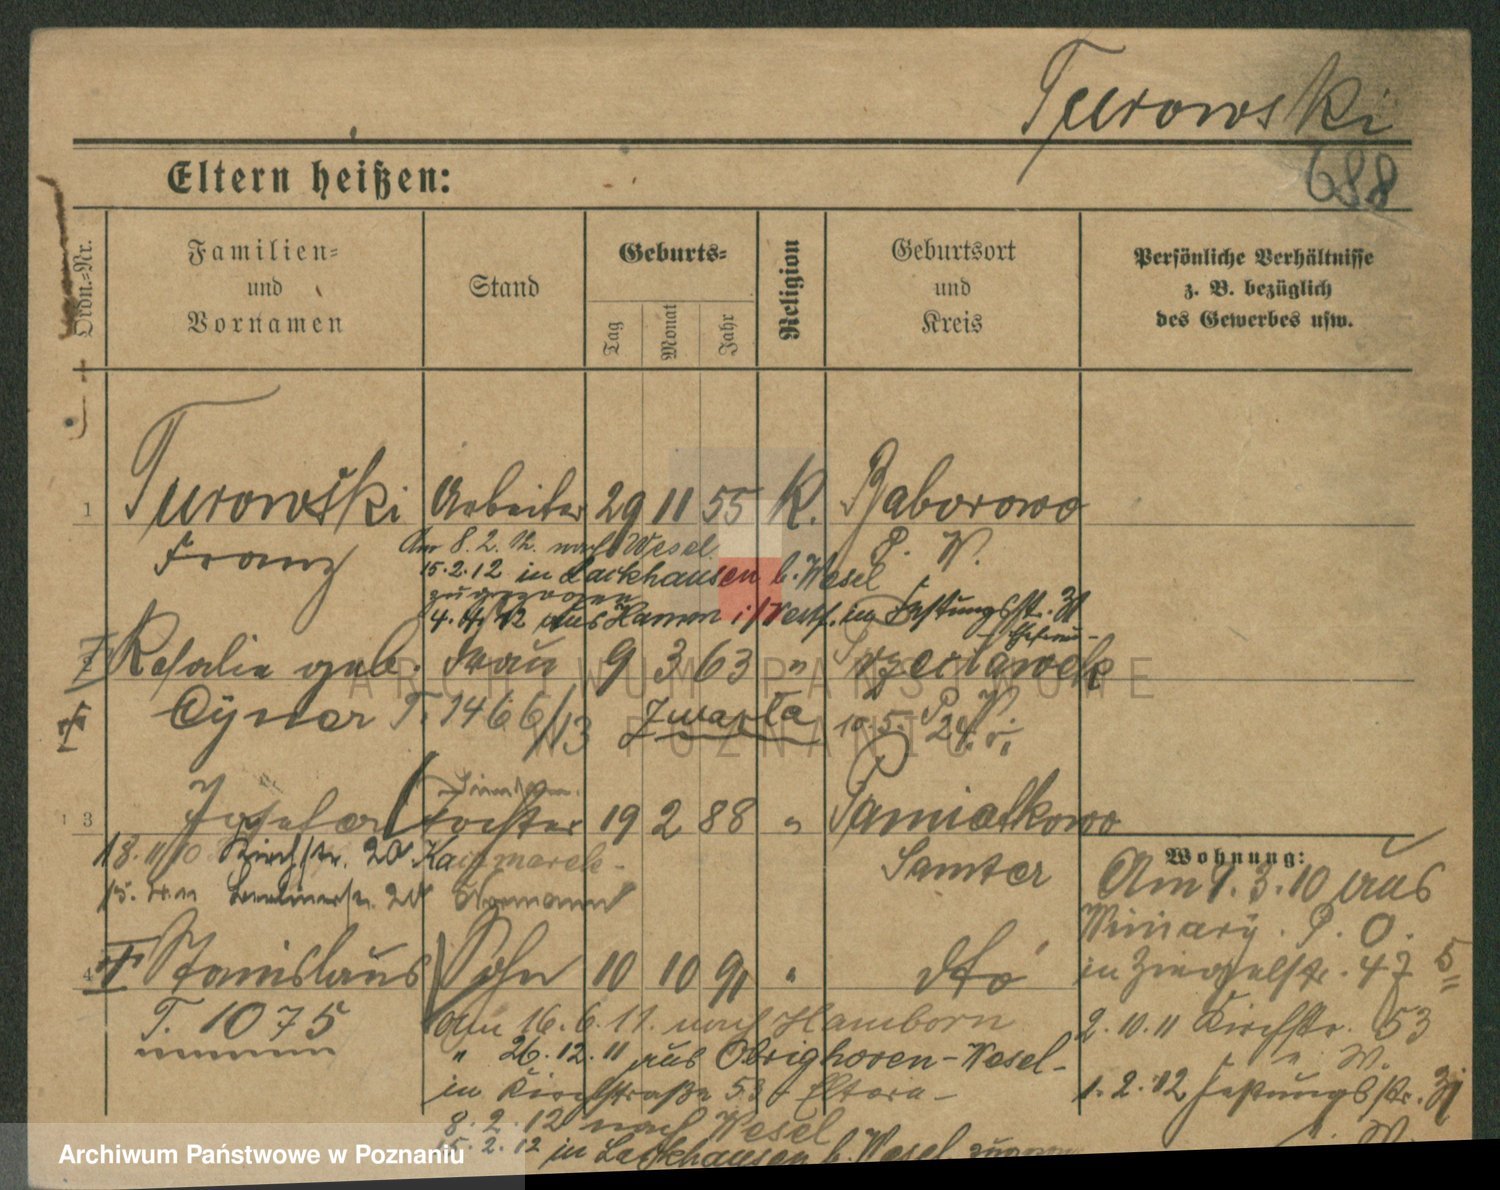 Turowski
688
Eltern heißen:
Ordn.-Nr.
Familien-
und
Vornamen
Stand
Geburts-
Tag
Monat
Jahr
Religion
Geburtsort
und
Kreis
Persönliche Verhältnisse
z. B. bezüglich
des Gewerbes usw.
1 Turowski Arbeiter 29 11 55 K. Baborowo
Franz P. W.
Am 8.2.12. nach Wesel
15.2.12 in Lackhausen b. Wesel
zugezogen
4.4.12 aus Hamm i/Westf. in Festungsstr. 31
Rosalie geb. Frau 9 3 63 "
Cyner T. 1466/13 10.5. 24.
3 Josefa Tochter 19 2 88 " Pamiatkowo
Samter
18.11/10 Kirchstr. 20 Kaczmarek
4 Stanislaus Sohn 10 10 91 " dto
T. 1075
Am 16.6.11. nach Hamborn
" 26.12.11 aus Obrighoven-Wesel-
in Kirchstraße 53 - Eltern -
8.2.12 nach Wesel
15.2.12 in Lackhausen b. Wesel
Wohnung:
Am 1.3.10 aus
Winiary. P. O.
in Ziegelstr. 47
2.10.11 Kirchstr. 53
W.
1.2.12 Festungsstr. 31
W.
ARCHIWUM PAŃSTWOWE
W POZNANIU
Archiwum Państwowe w Poznaniu